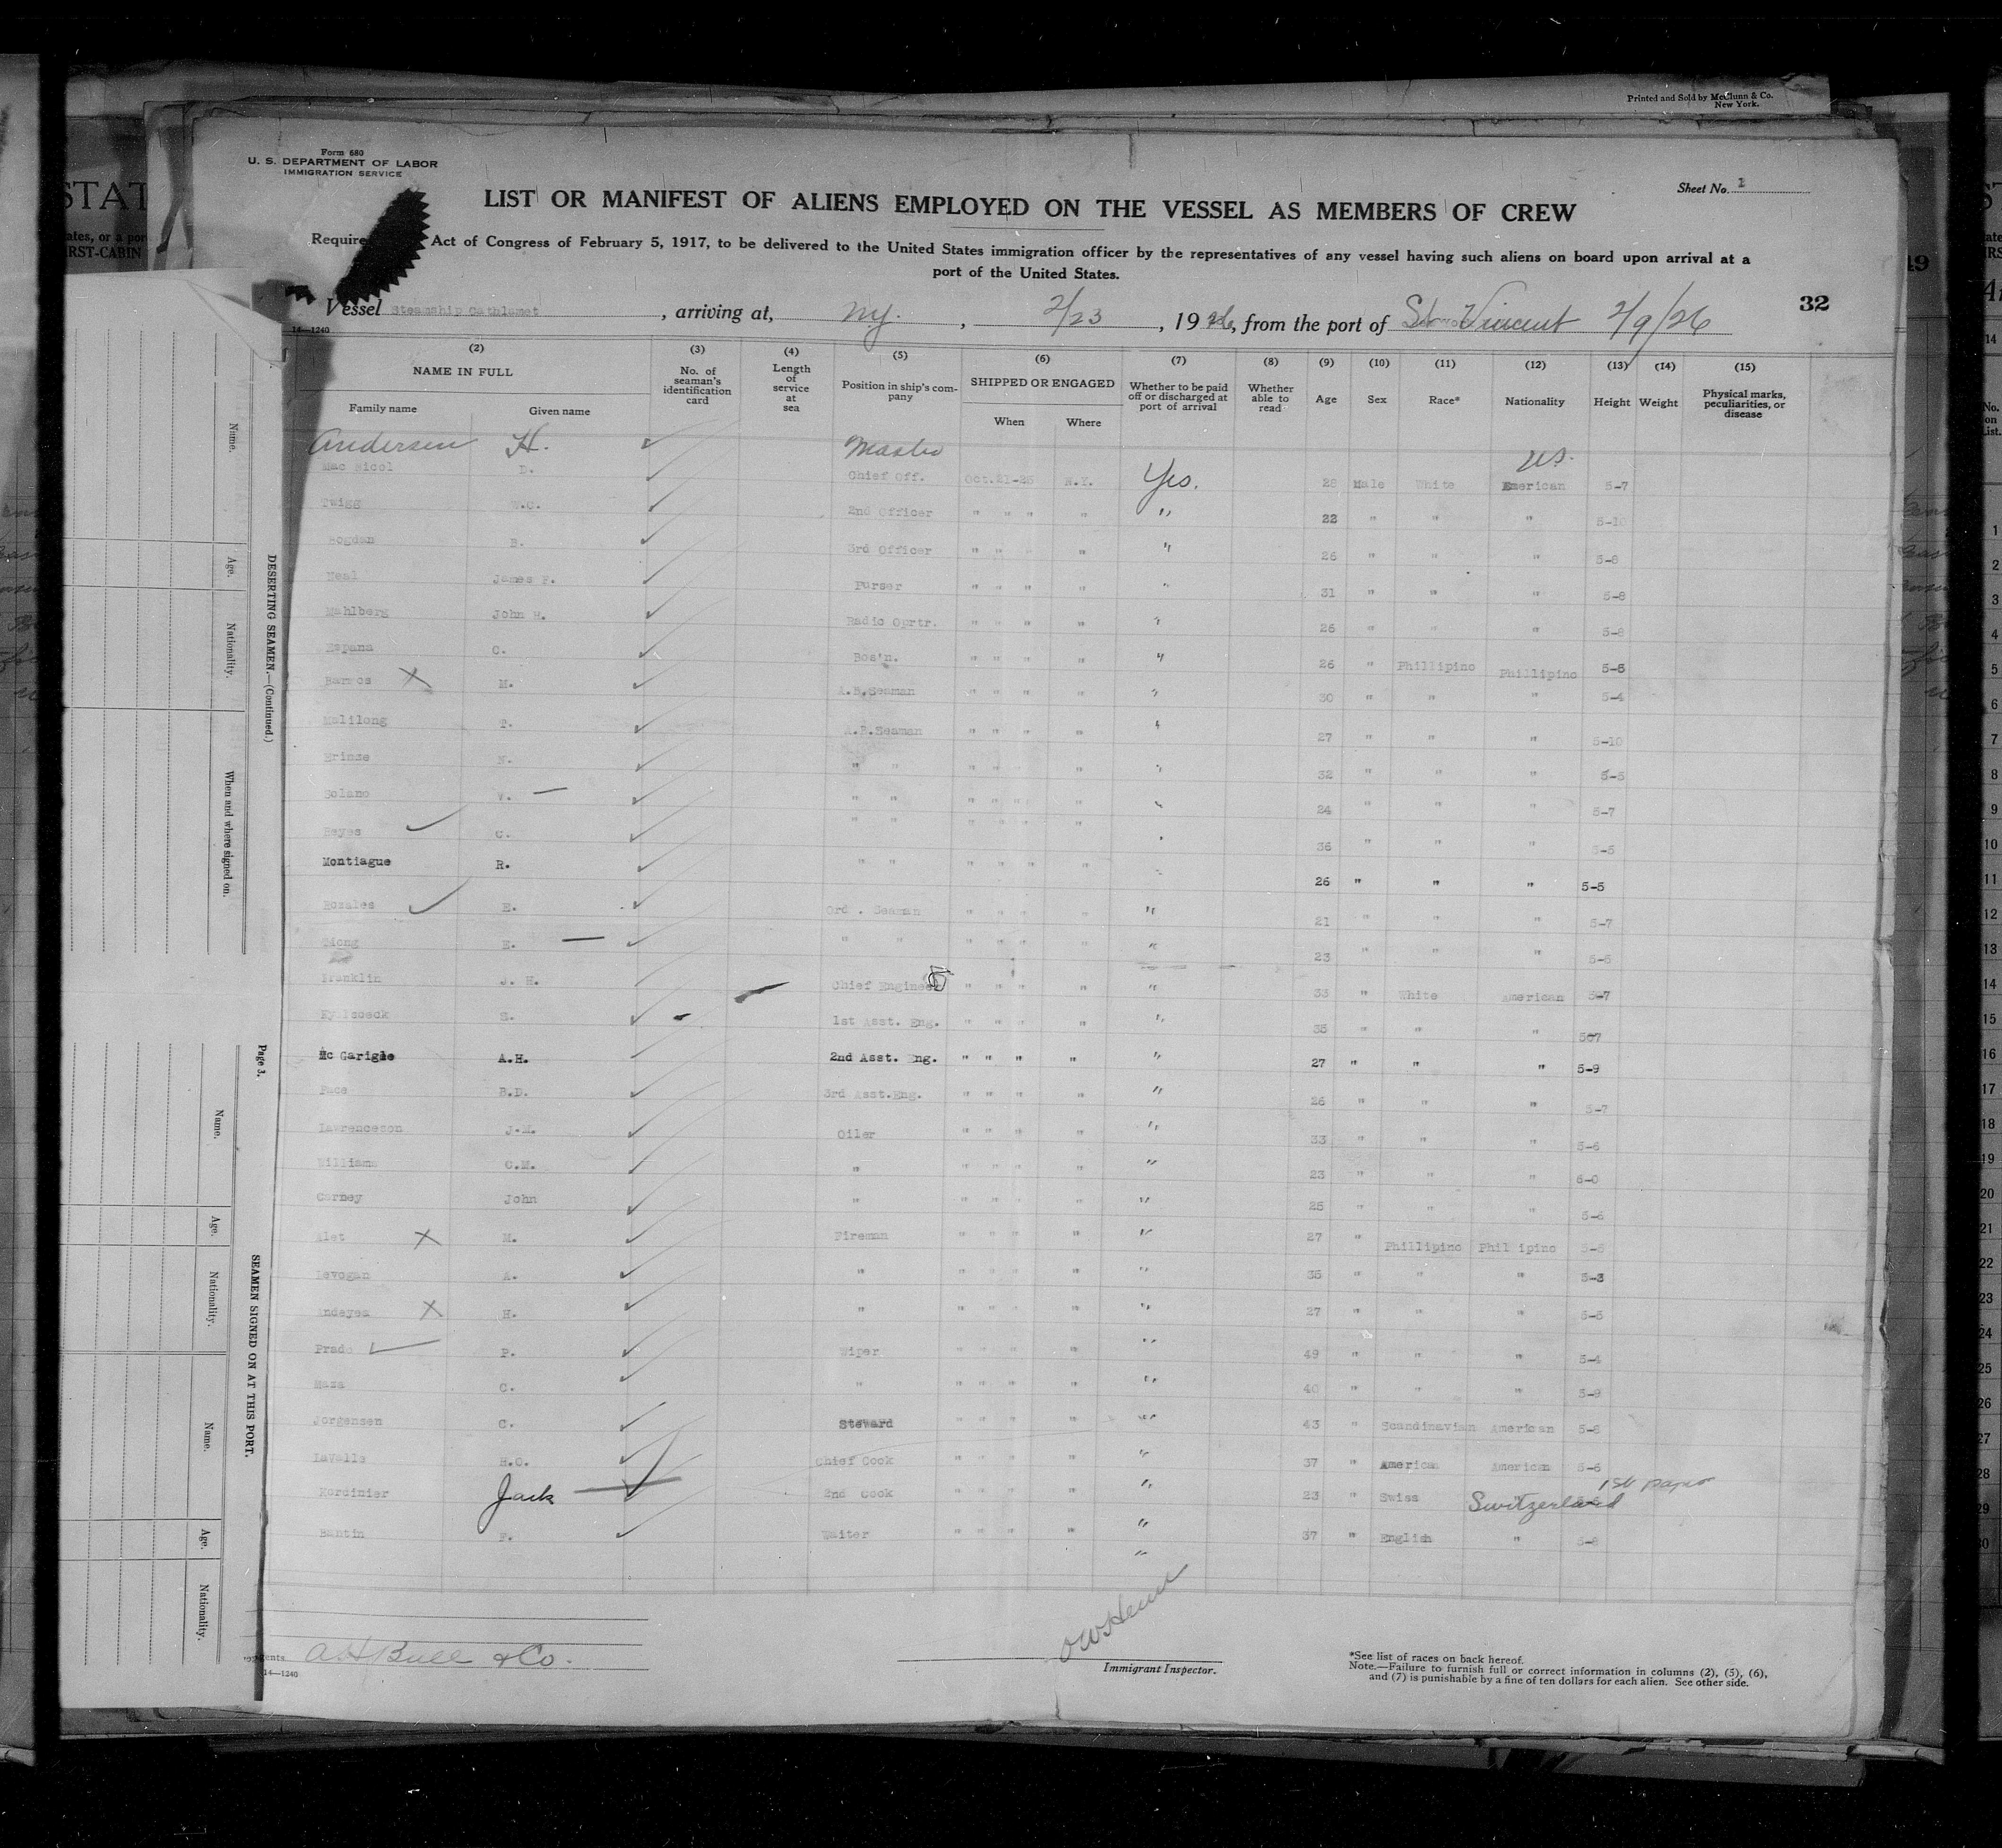 Printed and Sold by McClunn & Co.
New York.
Form 680
U. S. DEPARTMENT OF LABOR
IMMIGRATION SERVICE
Sheet No. 1
LIST OR MANIFEST OF ALIENS EMPLOYED ON THE VESSEL AS MEMBERS OF CREW
Require Act of Congress of February 5, 1917, to be delivered to the United States immigration officer by the representatives of any vessel having such aliens on board upon arrival at a
port of the United States.
32
Vessel Steamship Cathlamet, arriving at, NY., 2/23, 1926, from the port of St Vincent 2/9/26
14—1240
(2) (3) (4) (5) (6) (7) (8) (9) (10) (11) (12) (13) (14) (15)
NAME IN FULL
Family name Given name
No. of seaman's identification card
Length of service at sea
Position in ship's company
SHIPPED OR ENGAGED
When Where
Whether to be paid off or discharged at port of arrival
Whether able to read
Age Sex Race* Nationality Height Weight
Physical marks, peculiarities, or disease
Andersen H. Master US.
Mac Nicol D. Chief Off. Oct.21-25 N.Y. Yes. 28 Male White American 5-7
Twigg W.C. 2nd Officer " " " " " 22 " " " 5-10
Bogdan B. 3rd Officer " " " " " 26 " " " 5-8
Neal James F. Purser " " " " " 31 " " " 5-8
Mahlberg John W. Radio Oprtr. " " " " " 26 " " " 5-8
Espana C. Bos'n. " " " " " 26 " Phillipino Phillipino 5-5
Barros X M. A.B.Seaman " " " " " 30 " " " 5-4
Malilong T. A.B.Seaman " " " " " 27 " " " 5-10
N. " " " " " " " 32 " " " 5-5
Solano V. — " " " " " " " 24 " " " 5-7
Reyes G. " " " " " " " 36 " " " 5-5
Montiague R. " " " " " " " 26 " " " 5-5
Rozales E. Ord . Seaman " " " " " 21 " " " 5-7
E. — " " " " " " " 23 " " " 5-6
Franklin J. H. Chief Engineer " " " " " 33 " White American 5-7
1st Asst. Eng. " " " " " 35 " " " 5-7
Mc Garigle A.H. 2nd Asst. Eng. " " " " " 27 " " " 5-9
Pace B.D. 3rd Asst.Eng. " " " " " 26 " " " 5-7
Lawrenceson J.M. Oiler " " " " " 33 " " " 5-6
Williams C.M. " " " " " " 23 " " " 6-0
Carney John " " " " " " 25 " " " 5-6
Alet X M. Fireman " " " " " 27 " Phillipino Phil ipino 5-6
Levogan A. " " " " " " 35 " " " 5-3
Andeyes X H. " " " " " " 27 " " " 5-5
Prado P. Wiper " " " " " 49 " " " 5-4
Maza C. " " " " " " 40 " " " 5-9
Jorgensen C. Steward " " " " " 43 " Scandinavian American 5-8
LaValle H.O. Chief Cook " " " " " 37 " American American 5-6
Kordinier Jack 2nd Cook " " " " " 23 " Swiss Switzerland 1st paper
Bantin F. Waiter " " " " " 37 " English " 5-8
A H Bull & Co.
14—1240
Immigrant Inspector.
*See list of races on back hereof.
Note.—Failure to furnish full or correct information in columns (2), (5), (6),
and (7) is punishable by a fine of ten dollars for each alien. See other side.
DESERTING SEAMEN.—(Continued.)
Name. Age. Nationality. When and where signed on.
Page 3.
SEAMEN SIGNED ON AT THIS PORT.
Name. Age. Nationality.
Name. Age. Nationality.